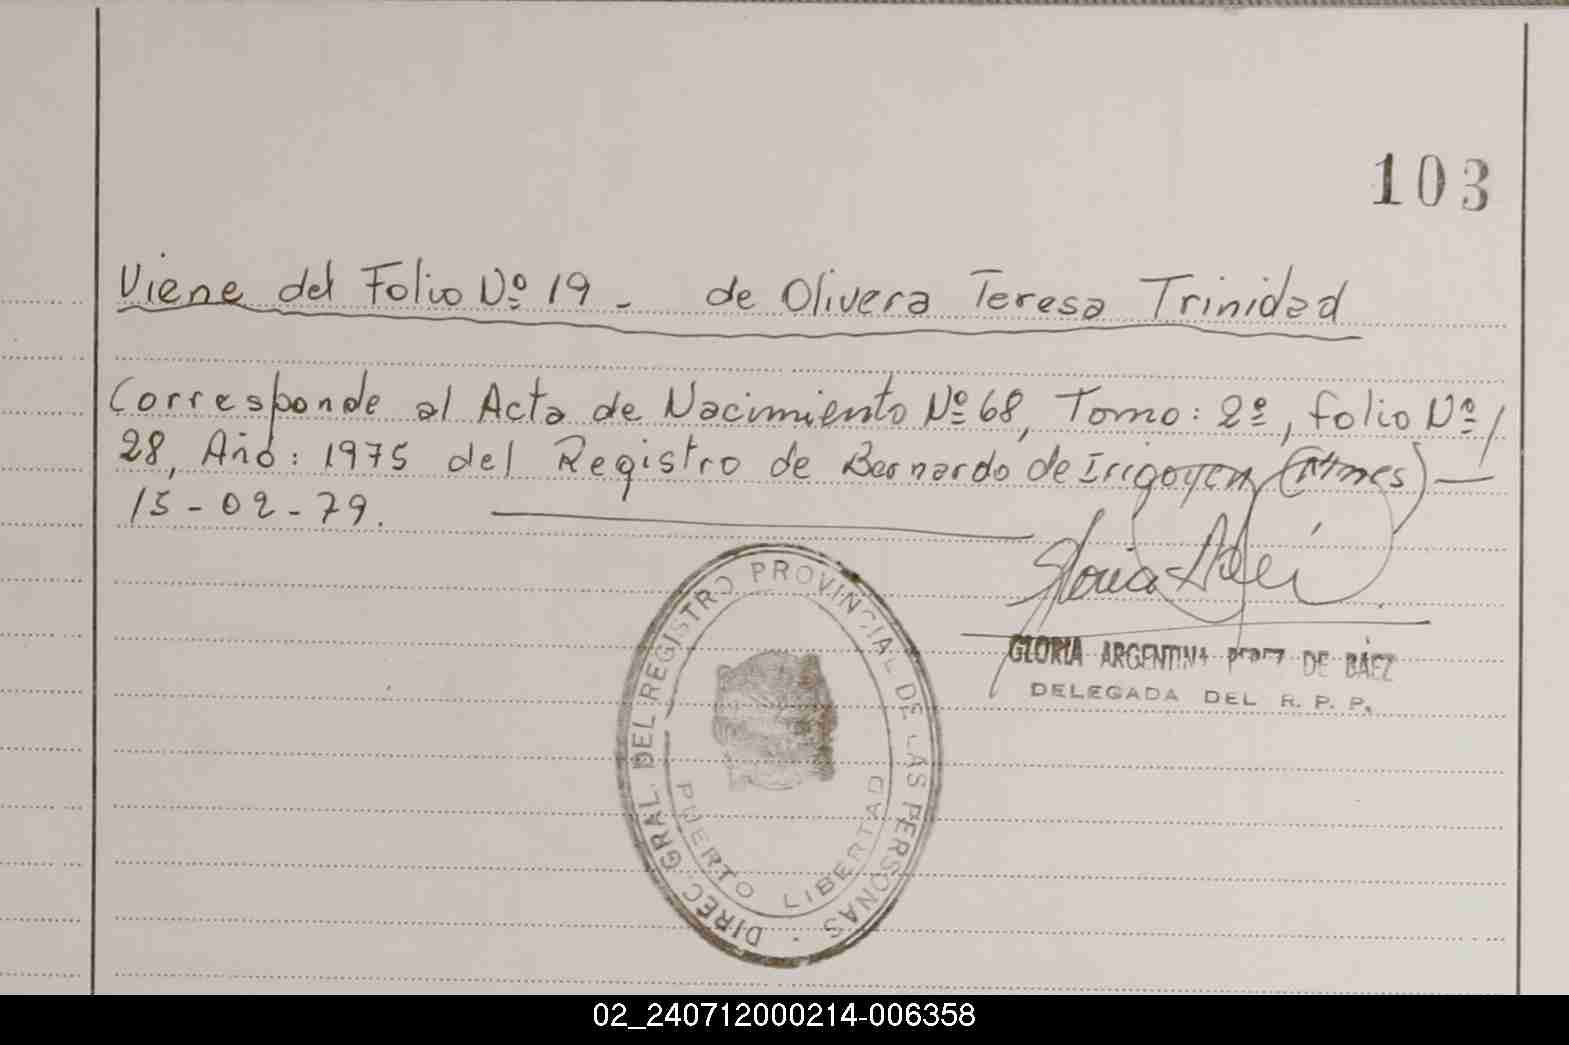 103
Viene del Folio Nº 19 - de Olivera Teresa Trinidad
Corresponde al Acta de Nacimiento Nº 68, Tomo: 2º, folio Nº/
28, Año: 1975 del Registro de Bernardo de Irigoyen (Mnes) —
15-02-79.
GLORIA ARGENTINA DE BÁEZ
DELEGADA DEL R. P. P.
DIREC. GRAL. DEL REGISTRO PROVINCIAL DE LAS PERSONAS
PUERTO LIBERTAD
02_240712000214-006358